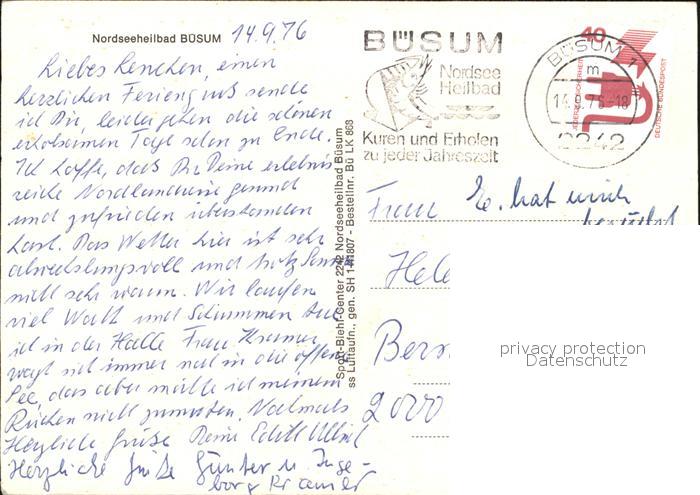 Nordseeheilbad BÜSUM 14.9.76
Liebes Lenchen, einen
herzlichen Feriengruß sende
ich Dir, leider gehen die schönen
erholsamen Tage schon zu Ende.
Ich hoffe, daß Du Deine erlebnis-
reiche Nordlandreise gesund
und zufrieden überstanden
hast. Das Wetter hier ist sehr
abwechslungsvoll und trotz Sonne
nicht sehr warm. Wir laufen
viel Watt und Schwimmen tue
ich in der Halle Frau Kramer
wagt sich immer noch in die offene
See, das aber möchte ich meinem
Rücken nicht zumuten. Nochmals
Herzliche Grüße Deine Edith
Herzliche Grüße Günter u. Inge-
borg Kramer
Sport-Biehl-Center 2242 Nordseeheilbad Büsum
ss Luftaufn., gen. SH 1-11807 - Bestellnr. Bü LK 868
BÜSUM
Nordsee
Heilbad
Kuren und Erholen
zu jeder Jahreszeit
BÜSUM 1
m
14.-9.76-18
2242
40
JEDERZEIT SICHERHEIT
DEUTSCHE BUNDESPOST
Frau E. hat mich
besucht
Hele
Bern
2000
privacy protection
Datenschutz